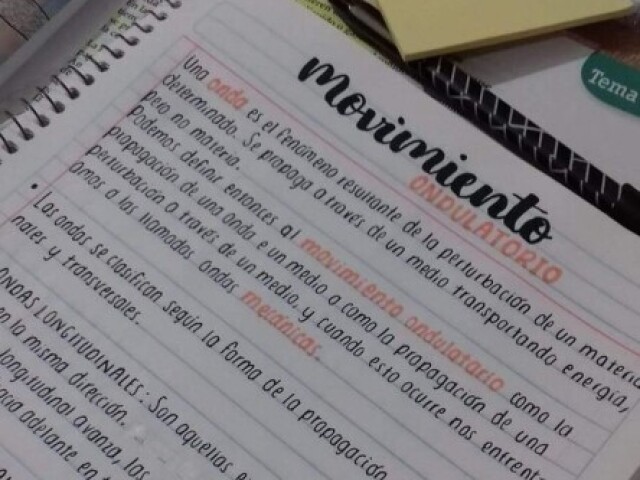 Tema
movimiento
ONDULATORIO
Una onda es el fenómeno resultante de la perturbación de un material
determinado. Se propaga a través de un medio transportando energía,
pero no materia.
Podemos definir entonces al movimiento ondulatorio como la
propagación de una onda e un medio o como la propagación de una
perturbación a través de un medio, y cuando esto ocurre nos enfrent
amos a las llamadas ondas mecánicas.
• Las ondas se clasifican según la forma de la propagación
nales y transversales.
ONDAS LONGITUDINALES: Son aquellas
la misma dirección.
longitudinal avanza, las
adelante en